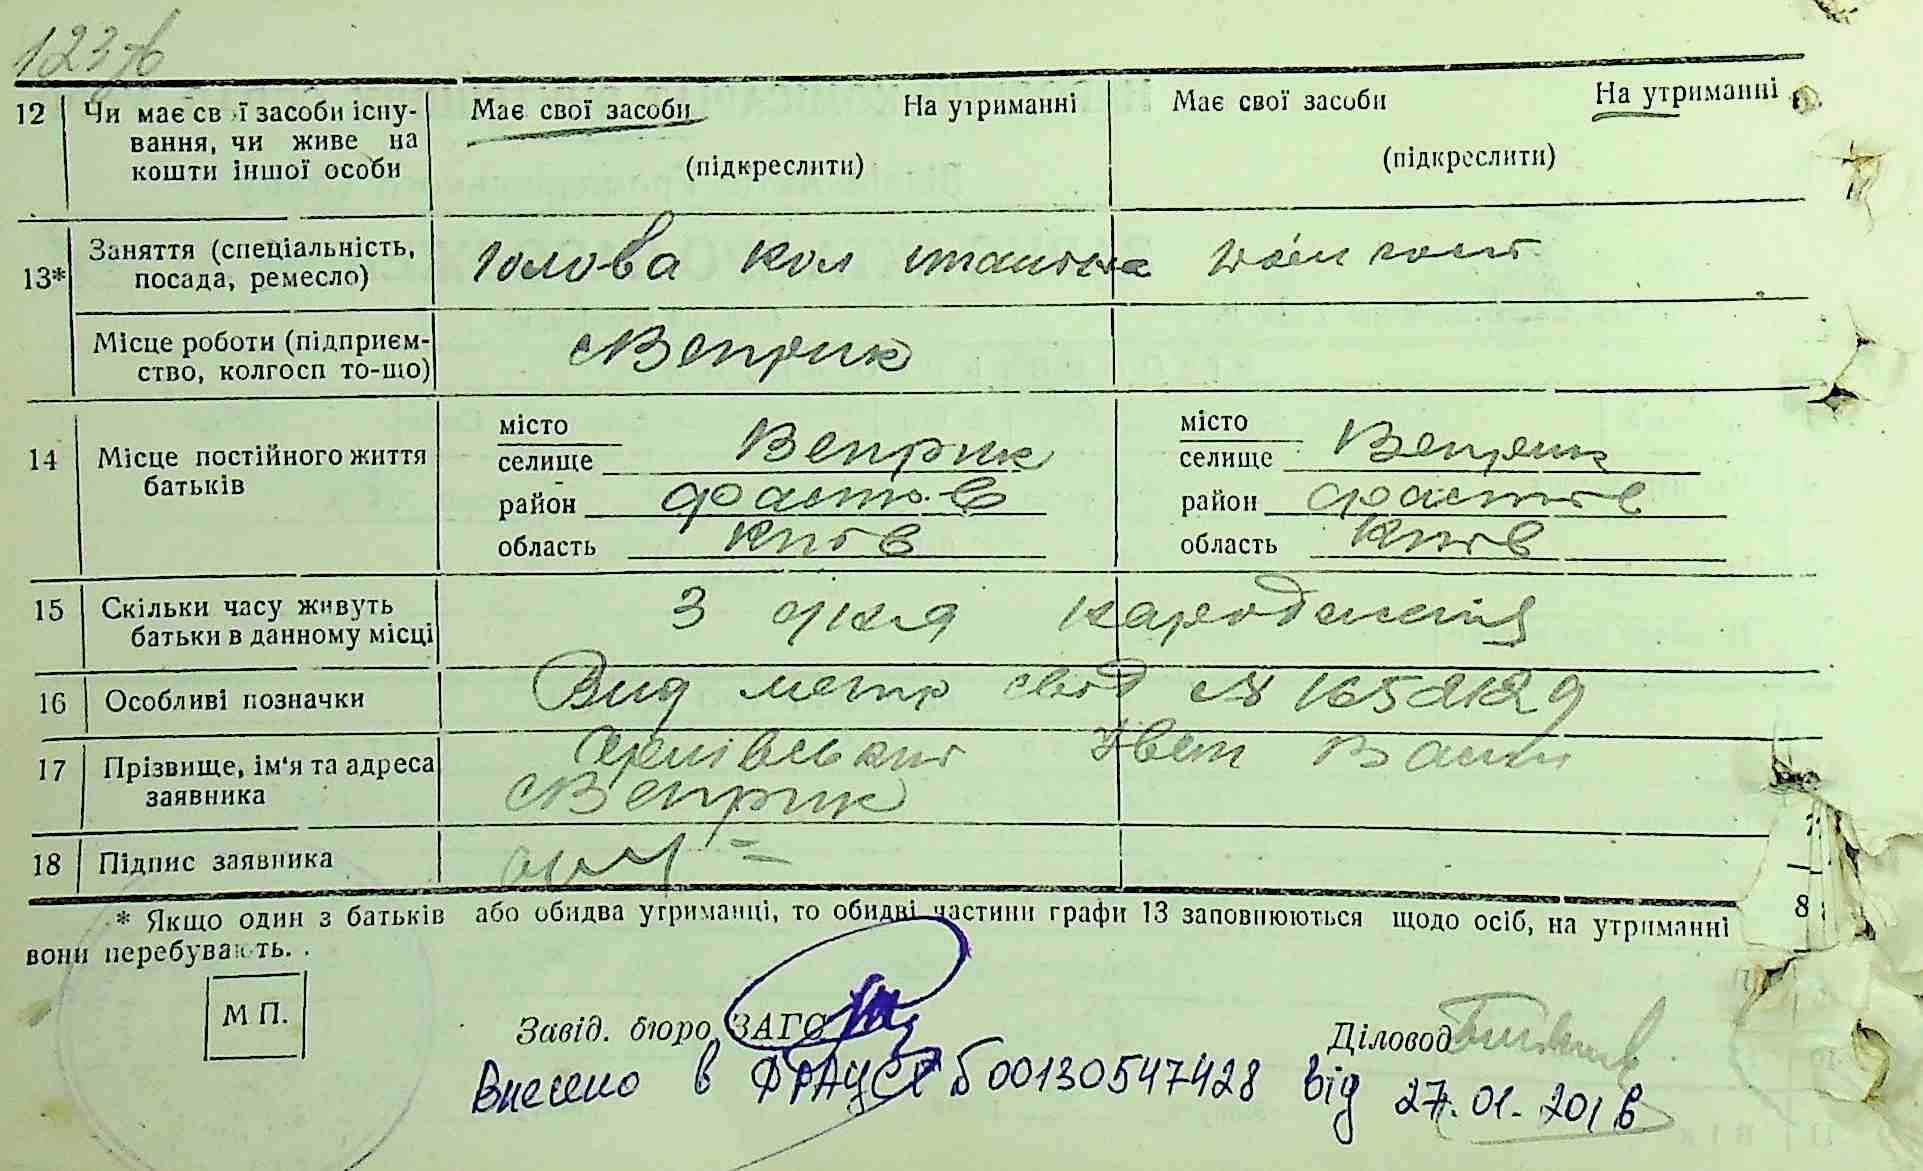 123
12 Чи має св ї засоби існу-
вання, чи живе на
кошти іншої особи
Має свої засоби На утриманні
(підкреслити)
Має свої засоби На утриманні
(підкреслити)
13* Заняття (спеціальність,
посада, ремесло)
голова кол
Місце роботи (підприєм-
ство, колгосп то-що)
с Веприк
14 Місце постійного життя
батьків
місто
селище Веприк
район Фастів
область Київ
місто
селище Веприк
район Фастів
область Київ
15 Скільки часу живуть
батьки в данному місці
З дня народження
16 Особливі позначки
Вид метр свід №
17 Прізвище, ім'я та адреса
заявника
с Веприк
18 Підпис заявника
7
8
* Якщо один з батьків або обидва утриманці, то обидві частини графи 13 заповнюються щодо осіб, на утриманні
вони перебувають.
М П.
Завід. бюро ЗАГС
Діловод
Внесено в ДРАЦСГ 00130547428 від 27.01.2018